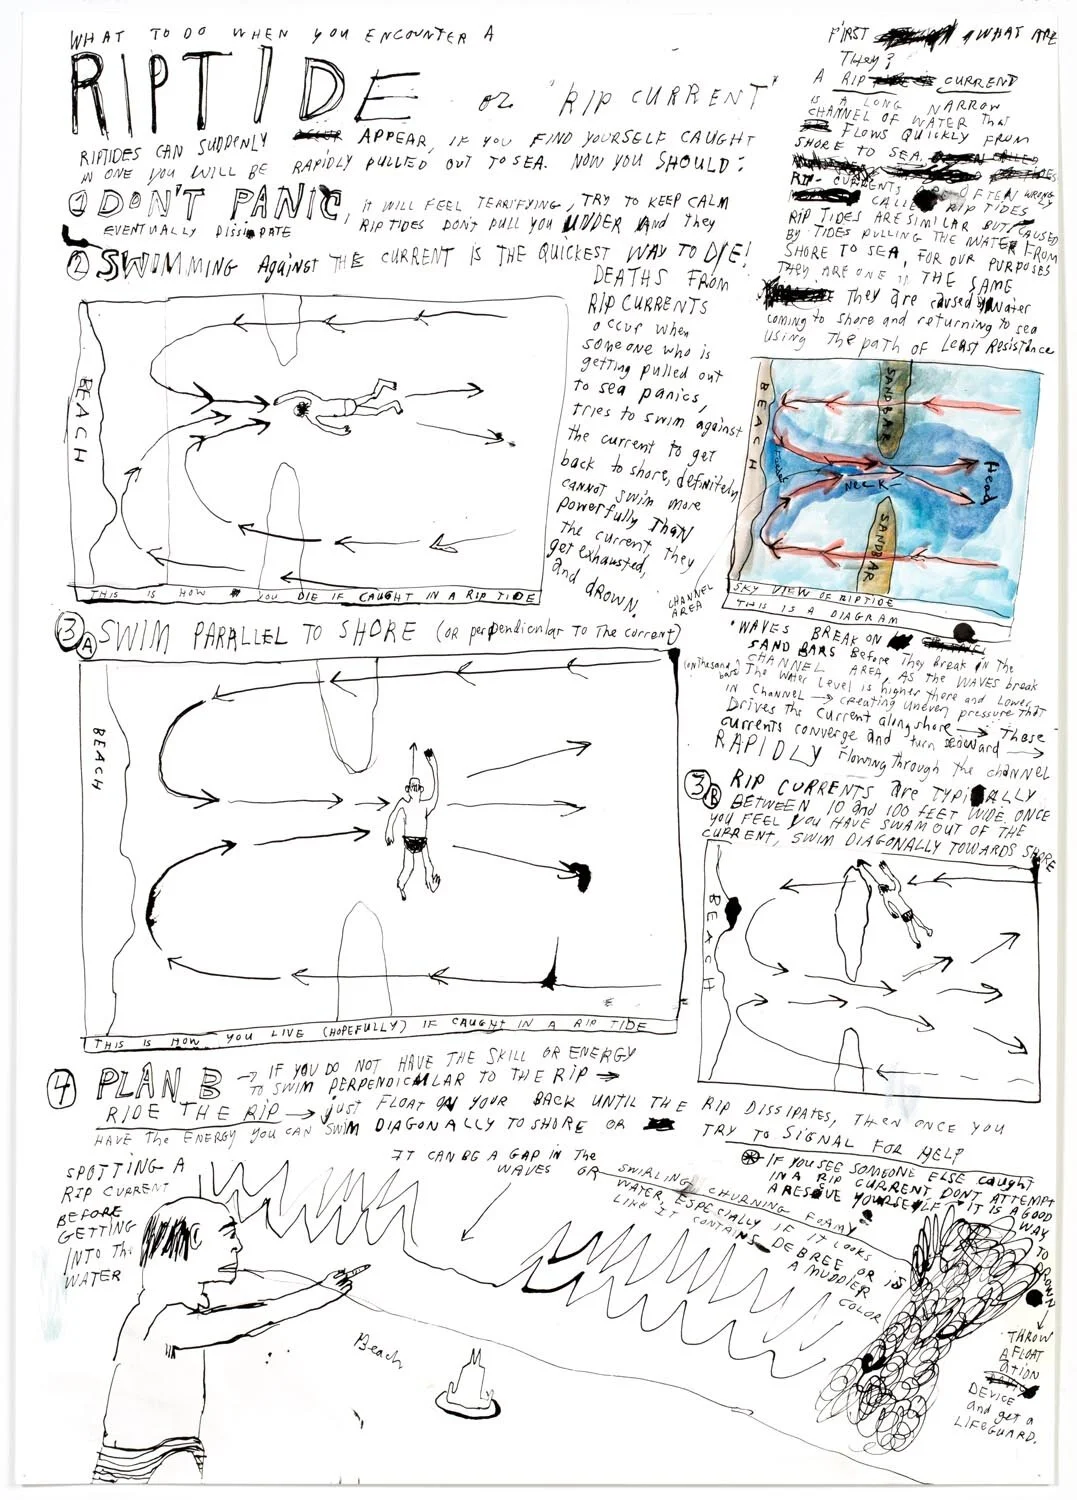 WHAT TO DO WHEN YOU ENCOUNTER A
RIPTIDE or "RIP CURRENT"
RIPTIDES CAN SUDDENLY APPEAR, IF YOU FIND YOURSELF CAUGHT
IN ONE YOU WILL BE RAPIDLY PULLED OUT TO SEA. NOW YOU SHOULD:
1 DON'T PANIC, IT WILL FEEL TERRIFYING, TRY TO KEEP CALM
RIPTIDES DON'T PULL YOU UDDER and they
EVENTUALLY DISSIPATE
2 SWIMMING AgAinst THE CURRENT IS THE QUICKEST WAY TO DIE!
DEATHS FROM
RIP CURRENTS
occur when
someone who is
getting pulled out
to sea panics,
tries to swim against
the current to get
back to shore, definitely
cannot swim more
powerfully Than
The current, they
get exhausted,
and drown.
BEACH
THIS IS HOW YOU DIE IF CAUGHT IN A RIP TIDE
FIRST WHAT ARE
They?
A RIP CURRENT
IS A LONG NARROW
CHANNEL OF WATER That
FLOWS QUICKLY FROM
SHORE TO SEA.
RIP-CURRENTS are OFTEN WRONGLY
CALLED RIP TIDES
RIP TIDES ARE SIMILAR BUT CAUSED
BY TIDES PULLING THE WATER FROM
SHORE TO SEA, FOR OUR PURPOSES
THEY ARE ONE IN THE SAME
They are caused by Water
coming to shore and returning to sea
using The path of Least Resistance
BEACH
SANDBAR
NECK
Head
SANDBAR
CHANNEL
AREA
SKY VIEW OF RIPTIDE
THIS IS A DIAGRAM
• WAVES BREAK ON
SAND BARS Before They Break in The
CHANNEL AREA, AS THE WAVES break
(on the sand bars) The Water Level is higher there and Lower
in Channel → creating uneven pressure That
Drives The Current along shore → These
currents converge and turn seaward →
RAPIDLY flowing through the channel
3 A SWIM PARALLEL TO SHORE (OR perpendicular To The current)
BEACH
THIS IS HOW YOU LIVE (HOPEFULLY) IF CAUGHT IN A RIP TIDE
3 B RIP CURRENTS are TYPICALLY
BETWEEN 10 and 100 FEET WIDE. ONCE
YOU FEEL YOU HAVE SWAM OUT OF THE
CURRENT, SWIM DIAGONALLY TOWARDS SHORE
BEACH
4 PLAN B → IF YOU DO NOT HAVE THE SKILL OR ENERGY
TO SWIM PERPENDICULAR TO THE RIP →
RIDE THE RIP → just FLOAT ON YOUR BACK UNTIL THE RIP DISSIPATES, THEN ONCE YOU
HAVE The ENERGY YOU CAN SWIM DIAGONALLY TO SHORE OR TRY TO SIGNAL FOR HELP
SPOTTING A
RIP CURRENT
BEFORE
GETTING
INTO The
WATER
IT CAN BE A GAP IN THE
WAVES OR SWIRLING, CHURNING FOAMY
WATER, ESPECIALLY IF IT LOOKS
LIKE IT CONTAINS DEBREE OR IS
A MUDDIER
COLOR
IF YOU SEE SOMEONE ELSE caught
IN A RIP CURRENT DON'T ATTEMPT
A RESCUE YOURSELF → IT IS A GOOD
WAY TO DROWN
THROW
A FLOAT
ATION
DEVICE
and get a
LIFEGUARD.
Beach